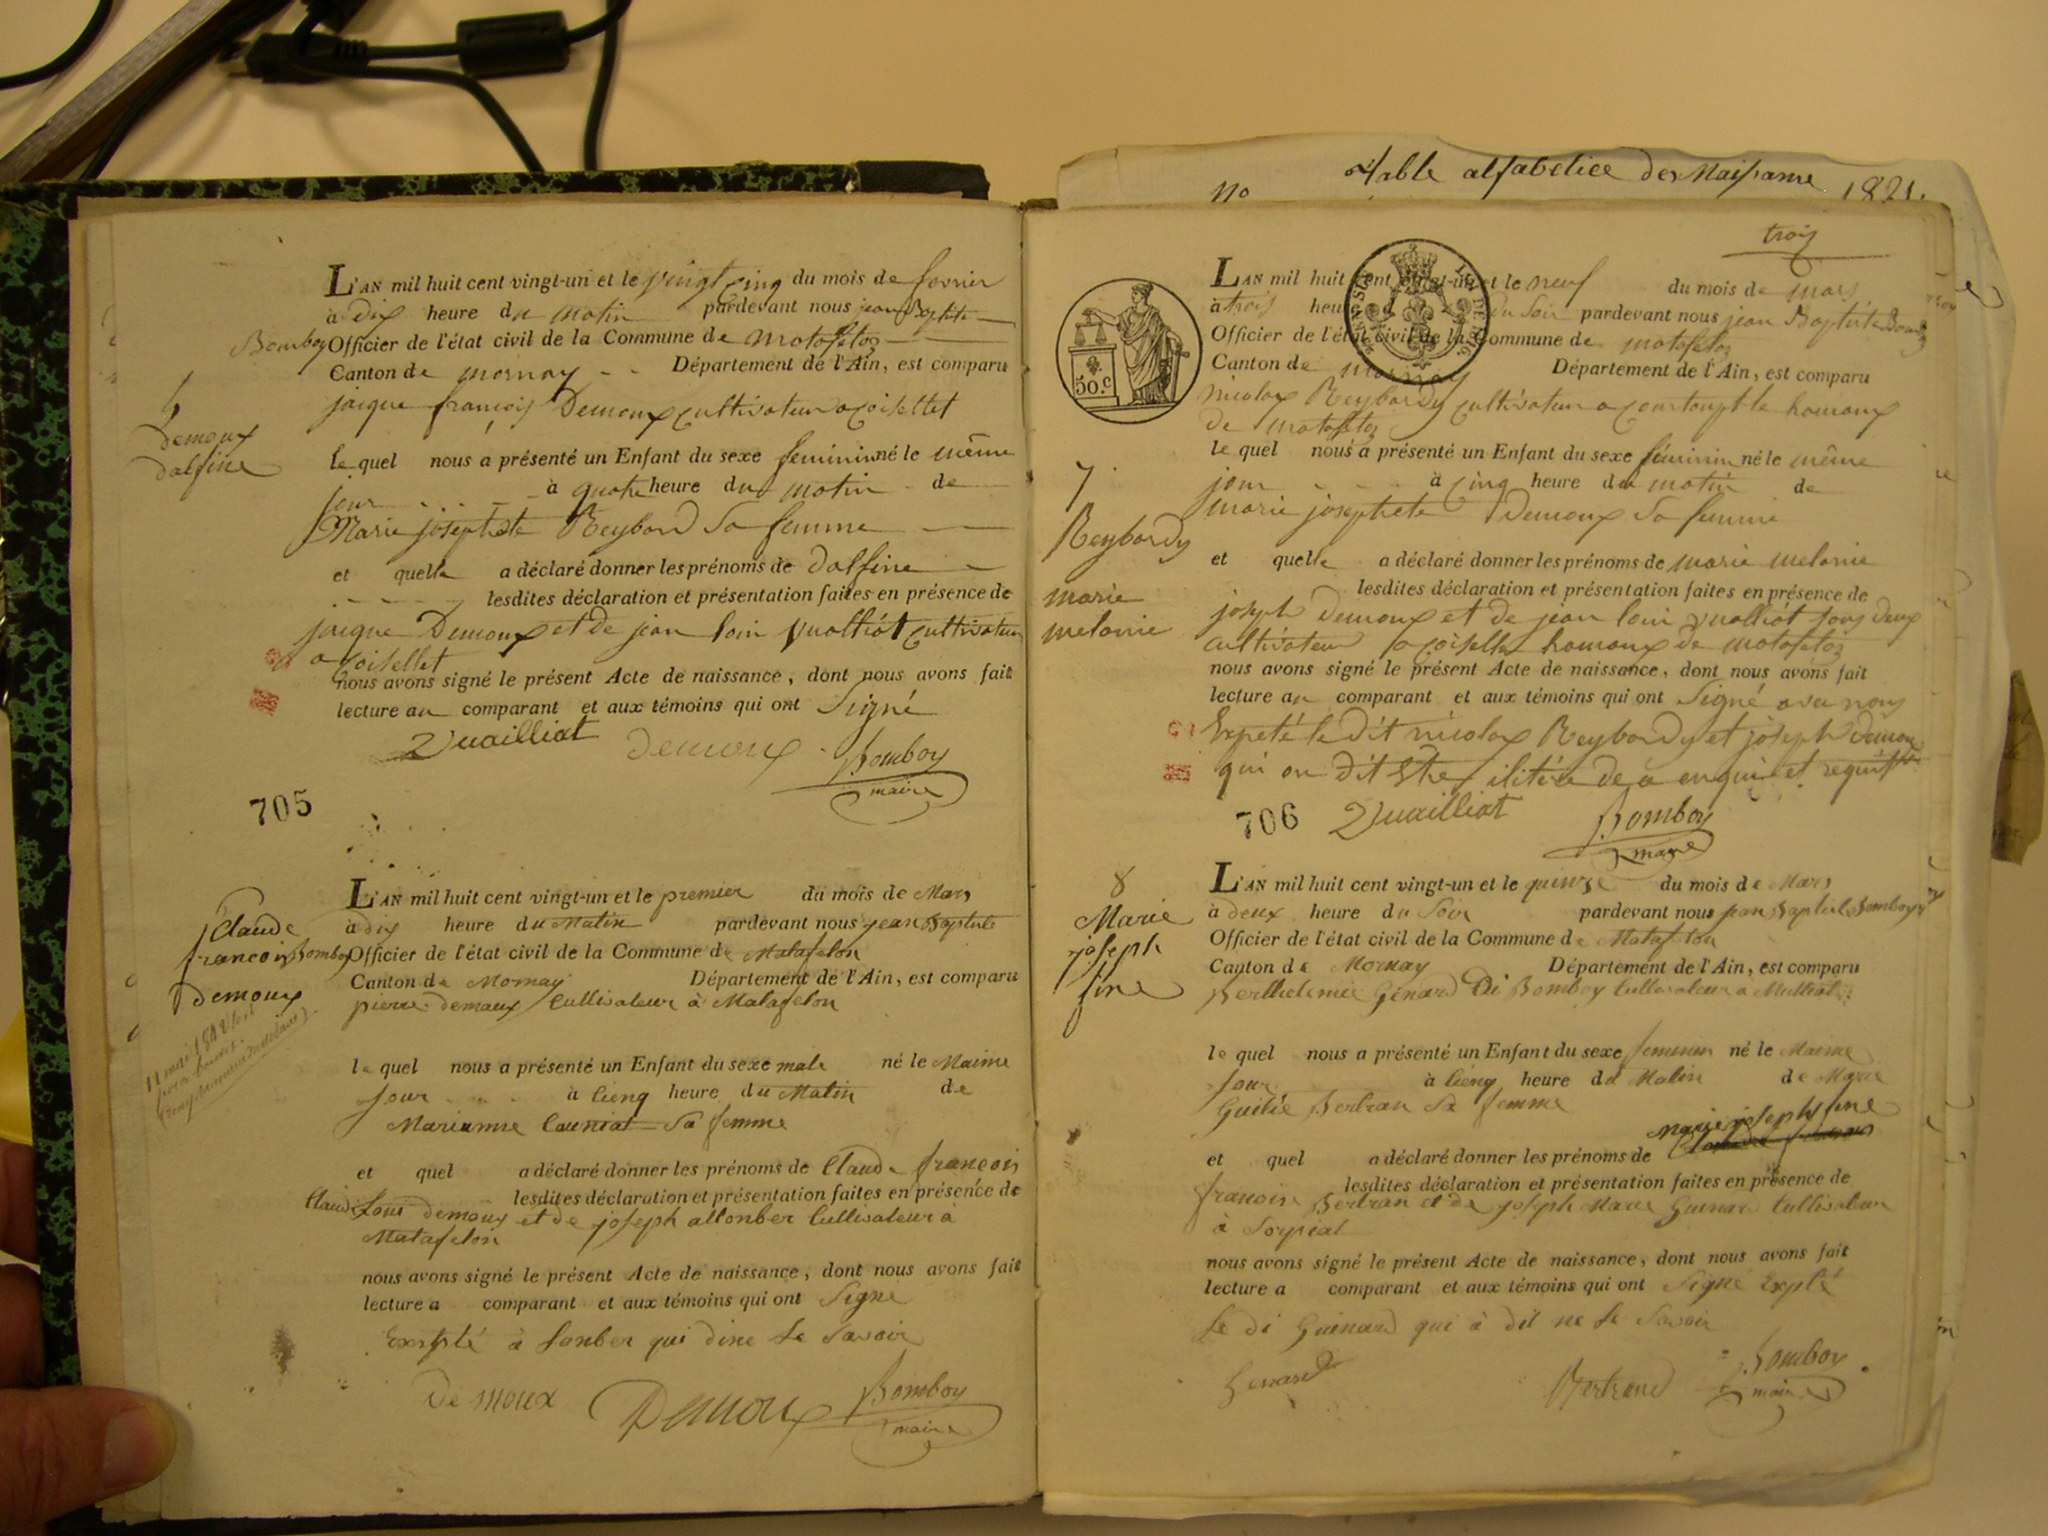 L'AN mil huit cent vingt-un et le vingt cinq du mois de fevrier
à dix heure du matin pardevant nous jean Baptiste
Bomboy Officier de l'état civil de la Commune de matafelon
Canton de mornay Département de l'Ain, est comparu
jacque francois Demoux cultivateur a Coisellet
6
demoux
dalfine
le quel nous a présenté un Enfant du sexe feminin né le même
jour à quatre heure du matin de
Marie josephete Reybard Sa femme
et quelle a déclaré donner les prénoms de Dalfine
lesdites déclaration et présentation faites en présence de
jacque Demoux et de jean loui Vualliat cultivateur
a Coisellet
nous avons signé le présent Acte de naissance, dont nous avons fait
lecture au comparant et aux témoins qui ont Signé
Vuailliat demoux Bomboy
maire
705
L'AN mil huit cent vingt-un et le premier du mois de Mars
à dix heure du Matin pardevant nous jean Baptiste
Bomboy Officier de l'état civil de la Commune de Matafelon
Canton de Mornay Département de l'Ain, est comparu
pierre demoux Cultivateur à Matafelon
Claude
francois
demoux
11 mai 18
le quel nous a présenté un Enfant du sexe male né le Maime
jour à cienq heure du Matin de
Marianne Cauniat Sa femme
et quel a déclaré donner les prénoms de Claude francois
lesdites déclaration et présentation faites en présence de
Claude Loui demoux et de joseph allonber Cultivateur à
Matafelon
nous avons signé le présent Acte de naissance, dont nous avons fait
lecture a comparant et aux témoins qui ont Signe
Exsepté a lonber qui dine le Savoir
De moux Demoux Bomboy
maire
Table alfabetice des Naissance 1821.
no
trois
50.c
L'AN mil huit cent vingt-un et le neuf du mois de mars
à trois heure du Soir pardevant nous jean Baptiste Bomboy
Officier de l'état civil de la Commune de matafelon
Canton de mornay Département de l'Ain, est comparu
nicolax Reybardy cultivateur a courtoupt le hamaux
de matafelon
7
Reybardy
marie
melanie
le quel nous a présenté un Enfant du sexe feminin né le même
jour à cinq heure du matin de
marie josephete Demoux Sa femme
et quelle a déclaré donner les prénoms de marie melanie
lesdites déclaration et présentation faites en présence de
joseph demoux et de jean loui Vualliat tous deux
cultivateur a Coisellet hamaux de matafelon
nous avons signé le présent Acte de naissance, dont nous avons fait
lecture au comparant et aux témoins qui ont Signé avec nous
Exepté le dit nicolax Reybardy et joseph demoux
qui on dit Etre ilitéré de a enqui et requis
706 Vuailliat Bomboy
maire
L'AN mil huit cent vingt-un et le quinze du mois de Mars
à deux heure du Soir pardevant nous jean Baptiste Bomboy
Officier de l'état civil de la Commune de Matafelon
Canton de Mornay Département de l'Ain, est comparu
Berthelemie Genard Di Bomboy Cultivateur a
8
Marie
joseph
fine
le quel nous a présenté un Enfant du sexe feminin né le Maime
jour à cienq heure du Matin de Marie
Bertran Sa femme
Marie joseph fine
et quel a déclaré donner les prénoms de
lesdites déclaration et présentation faites en présence de
francois Bertran et de joseph Marie Guinard Cultivateur
à Sorpiat
nous avons signé le présent Acte de naissance, dont nous avons fait
lecture a comparant et aux témoins qui ont Signe Expté
Le di Guinard qui à dit ne le Savoir
Genard Bertrand Bomboy
maire